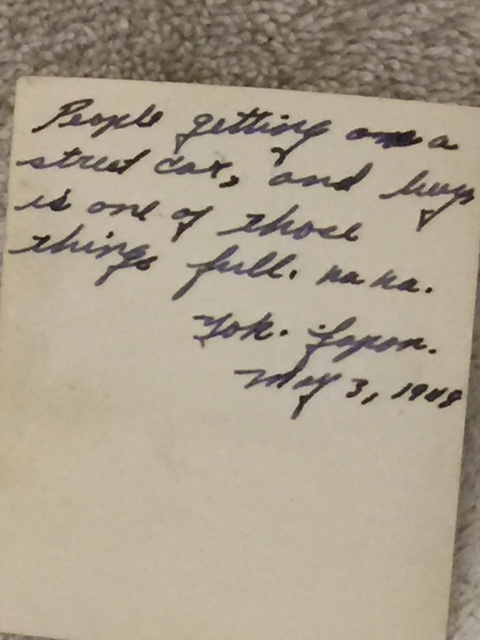 People getting on a
street car, and boy
is one of those
things full. Ha Ha.
Yok. Japan.
May 3, 1948